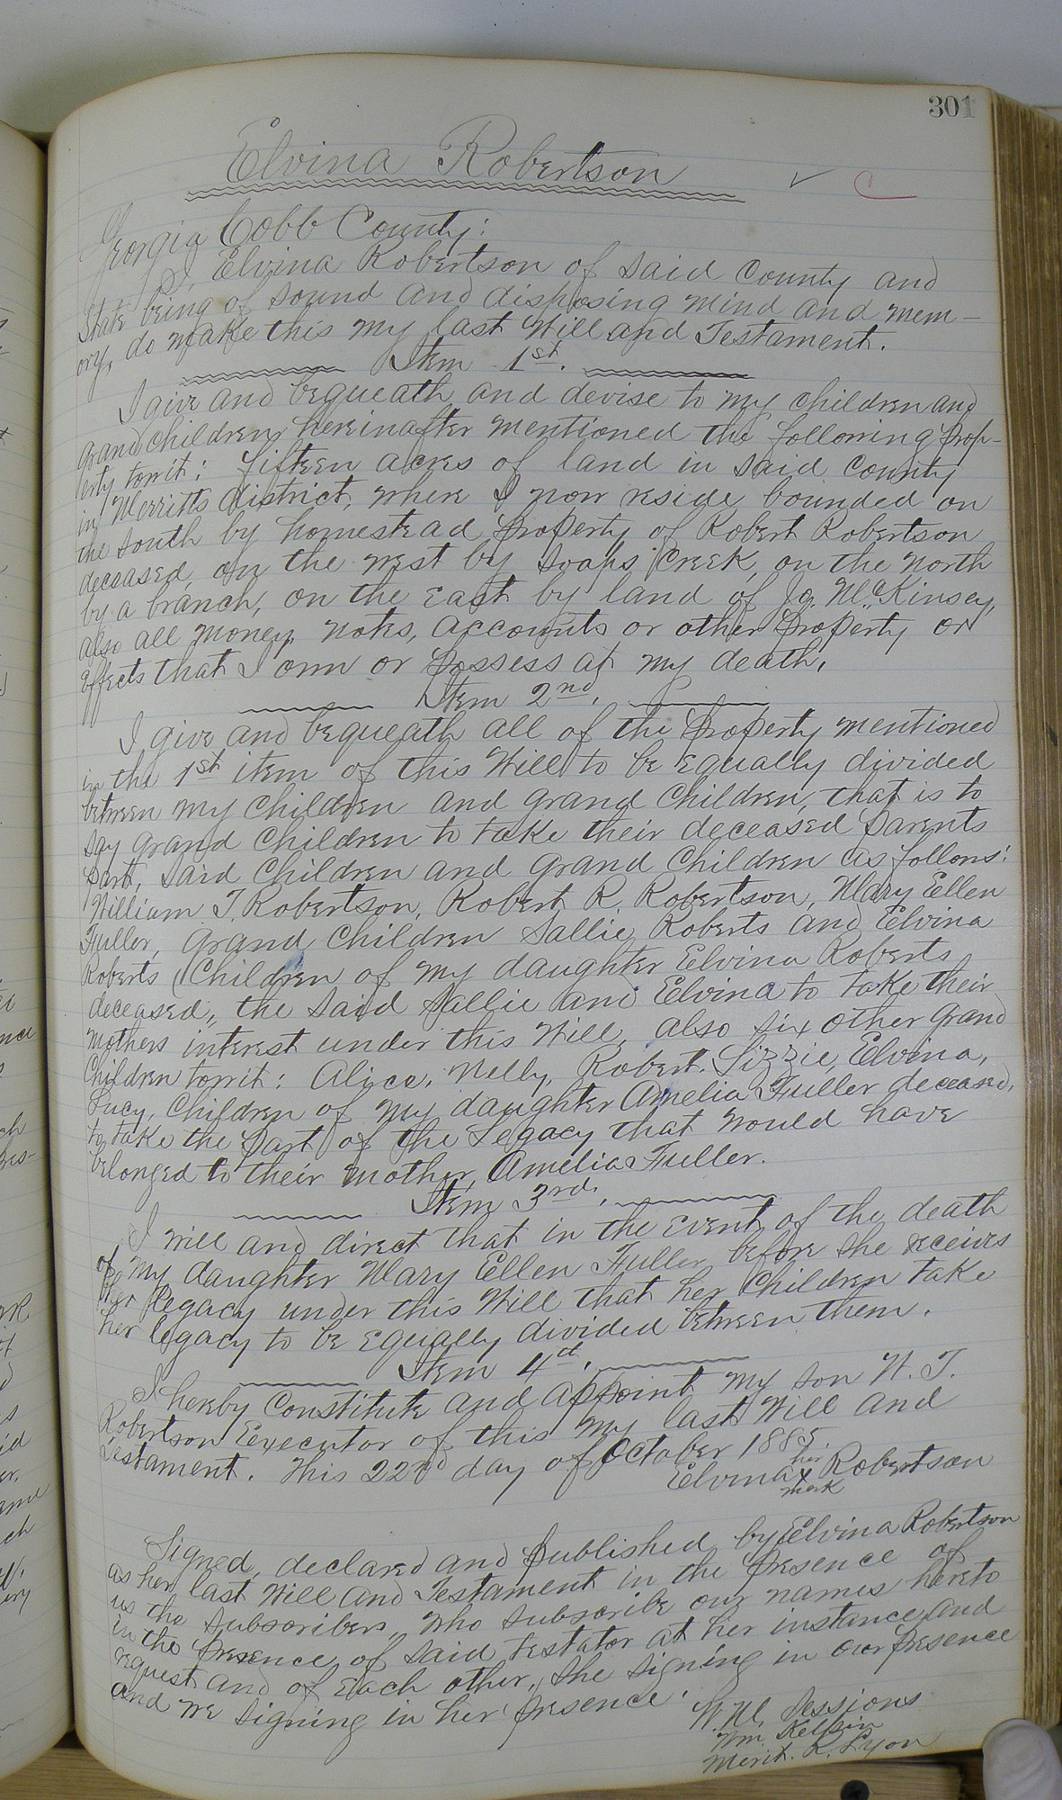 301
Elvina Robertson
Georgia Cobb County:
I, Elvina Robertson of said County and
State being of sound and disposing mind and mem-
ory, do make this my last Will and Testament.
Item 1st.
I give and bequeath and devise to my children and
grand children hereinafter mentioned the following prop-
erty towit: fifteen acres of land in said County
in Merritts district, where I now reside bounded on
the south by homestead property of Robert Robertson
deceased, on the west by Soaps Creek, on the North
by a branch, on the East by land of Jo. McKinsey,
also all money, notes, accounts or other property or
effects that I own or possess at my death.
Item 2nd.
I give and bequeath all of the property mentioned
in the 1st item of this Will to be equally divided
between my children and grand children, that is to
say grand children to take their deceased parents
part, said children and grand children as follows:
William T. Robertson, Robert R. Robertson, Mary Ellen
Fuller, grand children Sallie Roberts and Elvina
Roberts (Children of my daughter Elvina Roberts
deceased,, the said Sallie and Elvina to take their
mothers interest under this Will, also six other grand
Children towit: Alice, Nelly, Robert, Lizzie, Elvina,
Lucy, Children of my daughter Amelia Fuller deceased,
to take the part of the Legacy that would have
belonged to their mother, Amelia Fuller.
Item 3rd.
I will and direct that in the event of the death
of my daughter Mary Ellen Fuller before she receives
her legacy under this Will that her Children take
her legacy to be equally divided between them.
Item 4th.
I hereby Constitute and appoint my son W. T.
Robertson Executor of this my last Will and
Testament. This 22nd day of October 1885.
her
Elvina x Robertson
mark
Signed, declared and published by Elvina Robertson
as her last Will and Testament in the presence of
us the subscribers, who subscribe our names hereto
in the presence of said testator at her instance and
request and of each other, she signing in our presence
and we signing in her presence.
W. M. Sessions
Wm.
Merit. R. Lyon